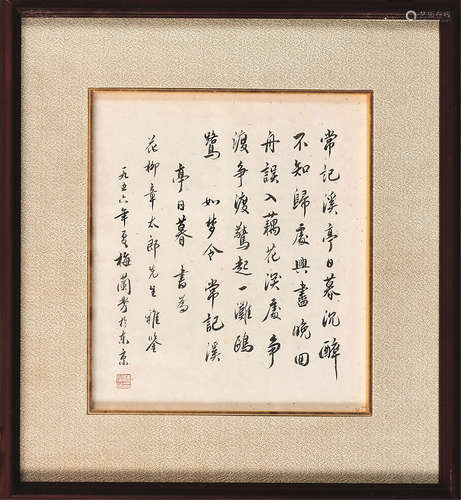 常記溪亭日暮沉醉
不知歸處興盡晚回
舟誤入藕花深處爭
渡爭渡驚起一灘鷗
鷺 如梦令 常記溪
亭日暮 書為
花柳章太郎先生雅鉴
一九五六年夏梅蘭芳於东京